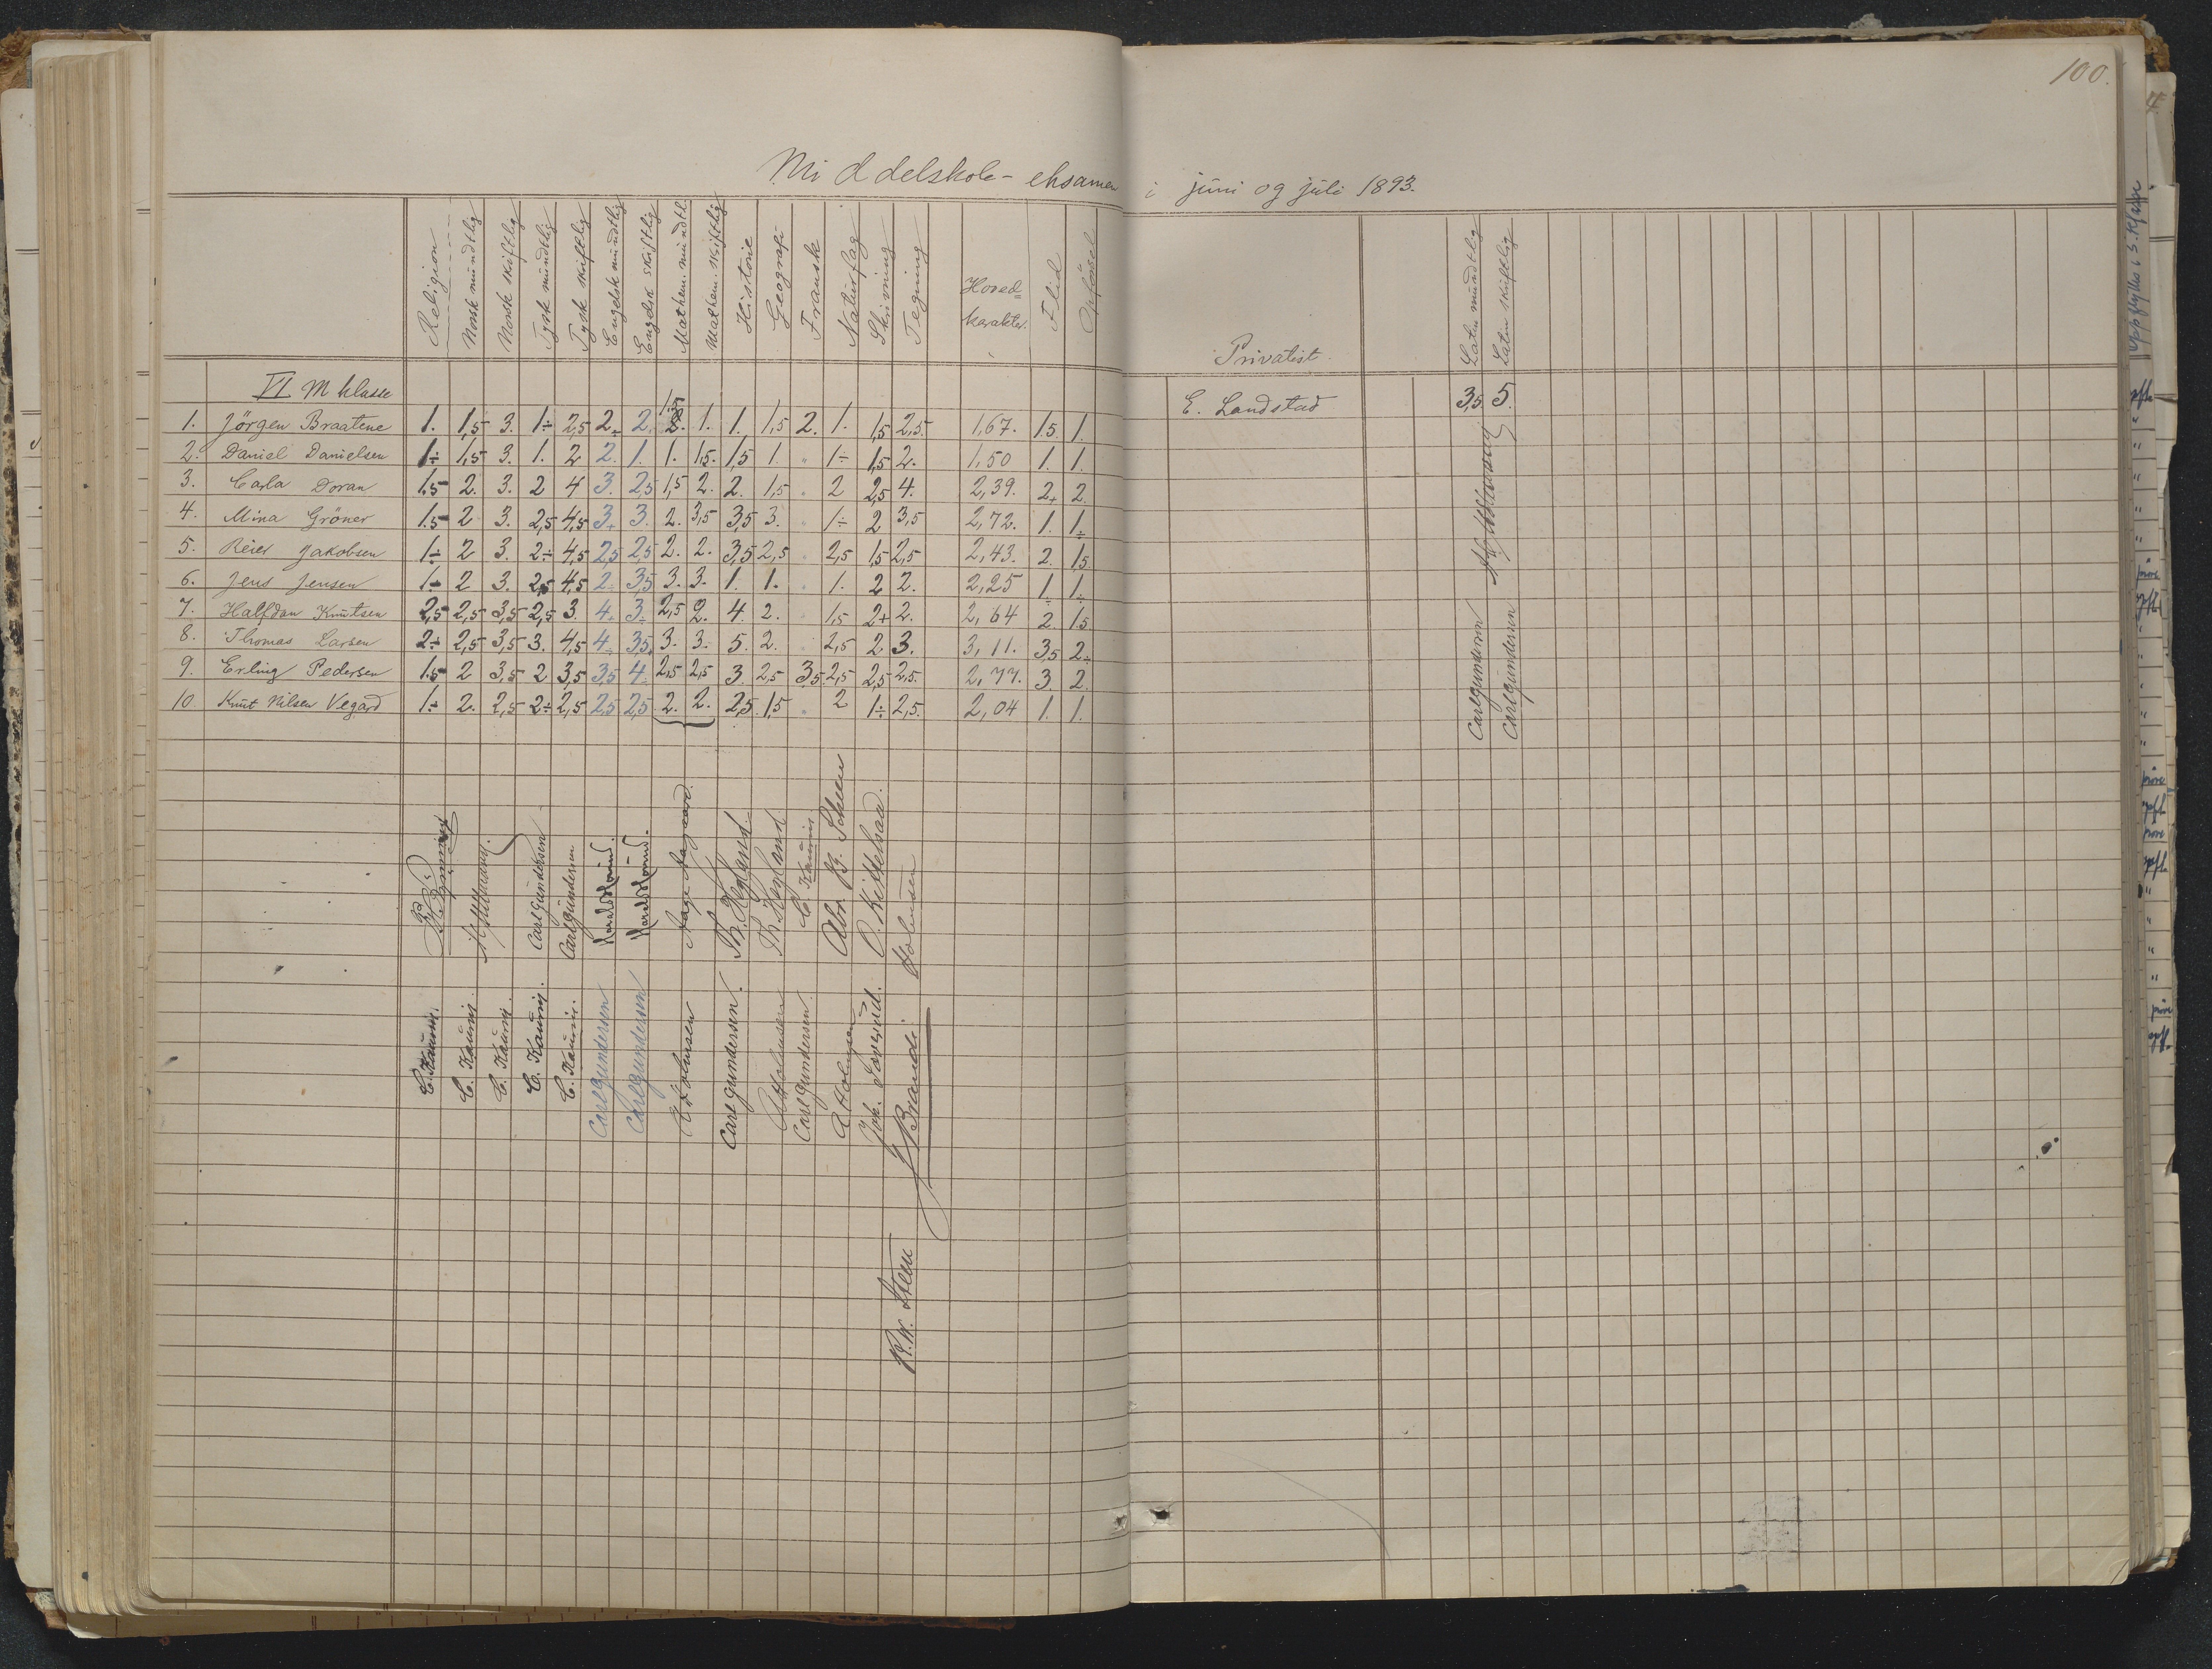 100.
Middelskole-eksamen i juni og juli 1893.
Religion Norsk mundtlig Norsk skriftlig Tysk mundtlig Tysk skriftlig Engelsk mundtlig Engelsk skriftlig Mathem. mundtl. Mathem. skriftlig Historie Geografi Fransk Naturfag Skrivning Tegning Hoved= karakter. Flid Opførsel
VI M klasse
1. Jörgen Braatene 1. 1,5 3. 1÷ 2,5 2÷ 2. 1,5 2. 1. 1. 1,5 2. 1. 1,5 2,5. 1,67. 1.5. 1.
2. Daniel Danielsen 1÷ 1,5 3. 1. 2 2. 1. 1. 1,5. 1,5 1. " 1÷ 1,5 2. 1,50 1. 1.
3. Carla Doran 1.5 2. 3. 2 4 3. 2,5 1,5 2. 2. 1,5 " 2 2,5 4. 2,39. 2+ 2.
4. Mina Gröner 1.5 2 3. 2,5 4,5 3+ 3. 2. 3,5 3,5 3. " 1÷ 2 3,5 2,72. 1. 1÷
5. Reier Jakobsen 1÷ 2 3. 2÷ 4,5 2,5 2,5 2. 2. 3,5 2,5 " 2,5 1,5 2,5 2,43. 2. 1,5.
6. Jens Jensen 1÷ 2 3. 2,5 4,5 2÷ 3,5 3. 3. 1. 1. " 1. 2 2. 2,25 1÷ 1÷
7. Halfdan Knutsen 2,5 2,5 3,5 2,5 3. 4. 3÷ 2,5 2. 4. 2. 1,5 2+ 2. 2,64 2. 1.5
8. Thomas Larsen 2÷ 2,5 3,5 3. 4,5 4÷ 3,5. 3. 3. 5. 2. " 2,5 2. 3. 3,11. 3,5 2÷
9. Erling Pedersen 1.5 2 3,5 2 3,5 3,5 4÷ 2,5 2,5 3. 2,5 3,5. 2,5 2,5 2,5. 2,77. 3. 2.
10 Knut Nilsen Vegard 1÷ 2. 2,5 2÷ 2,5 2,5 2,5. 2. 2. 2,5 1,5 " 2 1÷ 2,5. 2,04 1. 1.
Carl Gundersen
Carl Gundersen
Aage Aagaard.
Th. Hegland
Th. Hegland
Abr. B. Scheen
O. Kittelsaa.
Holmsen
Carl Gundersen
Carl Gundersen
A Holmsen
Carl Gundersen.
A Holmsen
Carl Gundersen.
A Holmsen
Brandi
R.W. Steen
Privatist
Latin mundtlig Latin skriftlig
E. Landstad 3,5. 5.
Carl Gundersen
Carl Gundersen